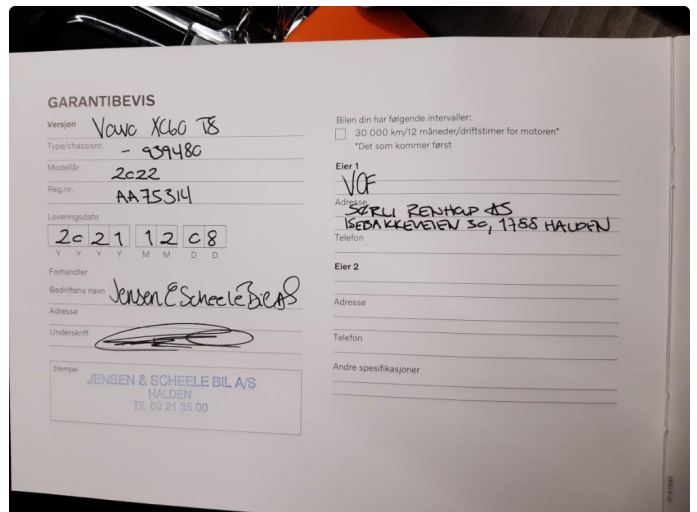 GARANTIBEVIS
Versjon Volvo XC60 T8
Type/chassisnr. - 939480
Modellår 2022
Reg.nr. AA75314
Leveringsdato
2021 12 08
Y Y Y Y M M D D
Forhandler
Bedriftens navn Jensen & Scheele Bil AS
Adresse
Underskrift
Stempel
JENSEN & SCHEELE BIL A/S
HALDEN
Tlf. 69 21 35 00
Bilen din har følgende intervaller:
30 000 km/12 måneder/driftstimer for motoren*
*Det som kommer først
Eier 1
VCF
Adresse SØRLI RENHOLD AS
ISEBAKKEVEIEN 30, 1788 HALDEN
Telefon
Eier 2
Adresse
Telefon
Andre spesifikasjoner